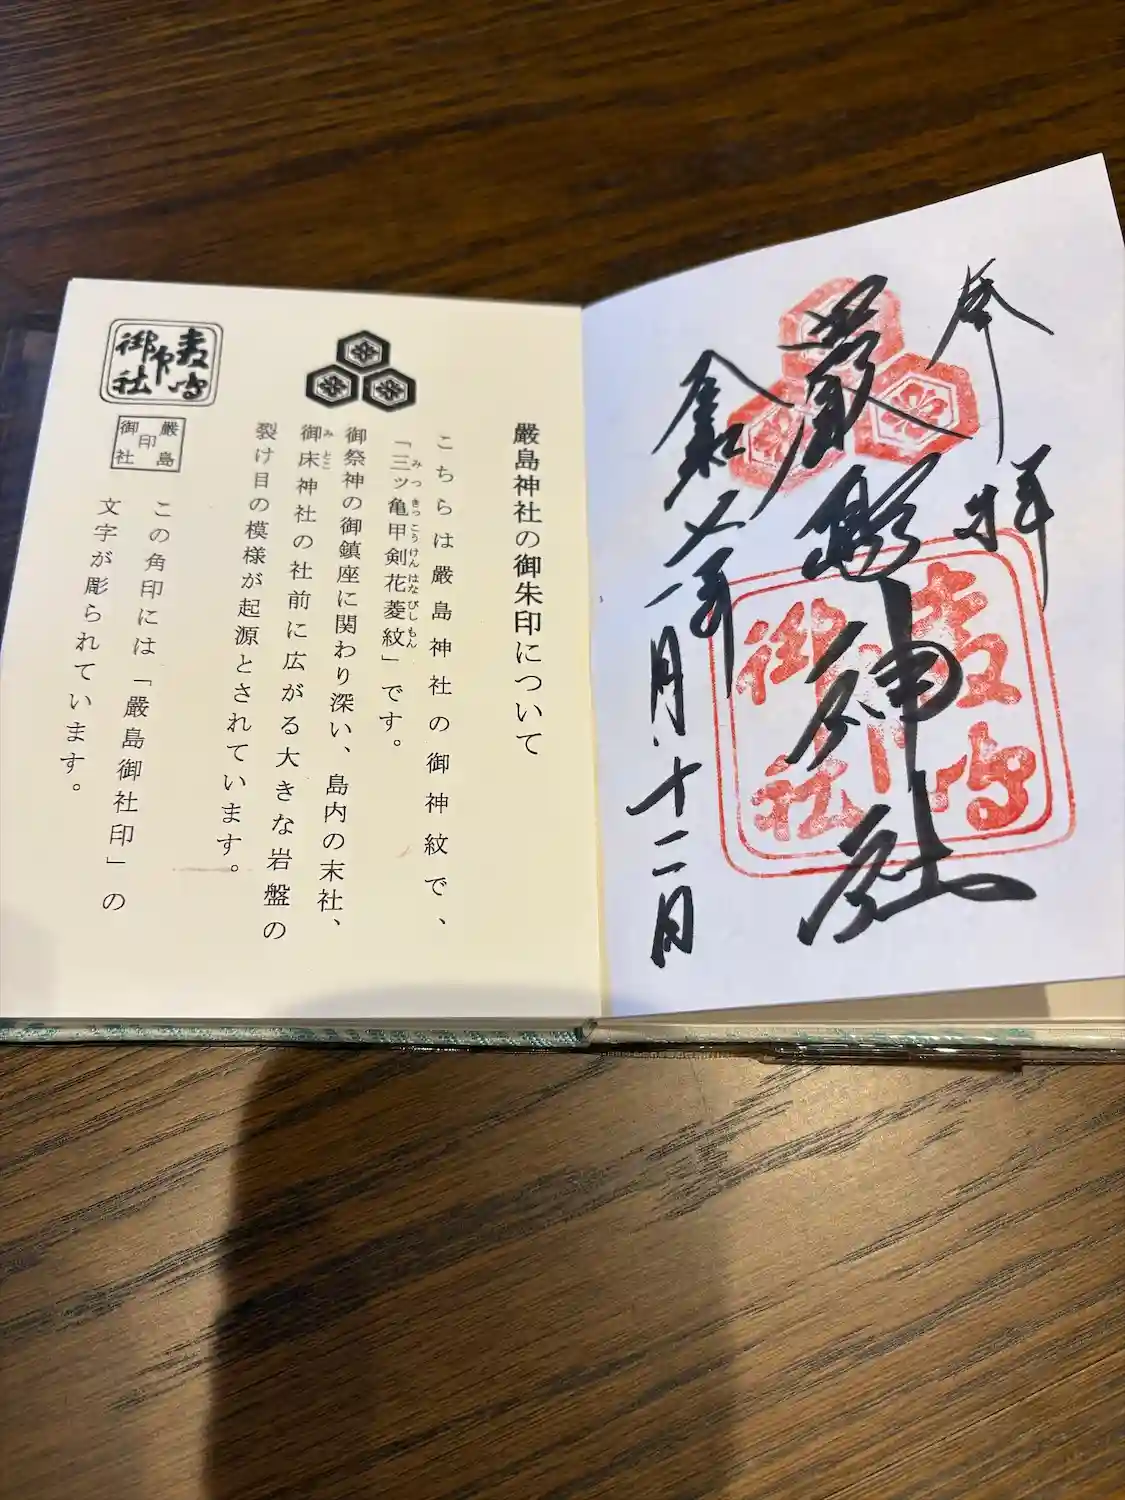 奉拝
厳島神社
令和六年一月十二日
嚴島神社の御朱印について
こちらは嚴島神社の御神紋で、
「三ッ亀甲剣花菱紋」です。
みつきっこうけんはなびしもん
御祭神の御鎮座に関わり深い、島内の末社、
御床神社の社前に広がる大きな岩盤の
みとこ
裂け目の模様が起源とされています。
嚴島
御社
印
この角印には「嚴島御社印」の
文字が彫られています。